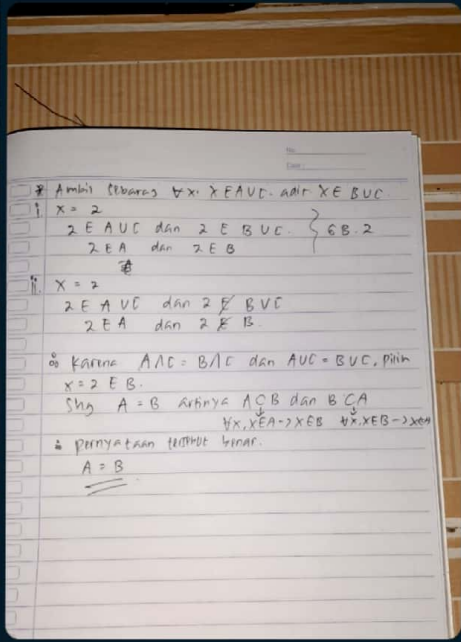 No.
Date
* Ambil sebarang ∀x. x ∈ A∪C. adit x ∈ B∪C.
i. x = 2
2 ∈ A∪C dan 2 ∈ B∪C. } GB.2
2 ∈ A dan 2 ∈ B
ii. x = 2
2 ∈ A∪C dan 2 ∉ B∪C
2 ∈ A dan 2 ∉ B.
∴ Karena A∩C = B∩C dan A∪C = B∪C, pilih
x = 2 ∈ B.
Shg A = B artinya A⊆B dan B⊆A
∀x, x∈A -> x∈B ∀x, x∈B -> x∈A
∴ pernyataan tersebut benar.
A = B